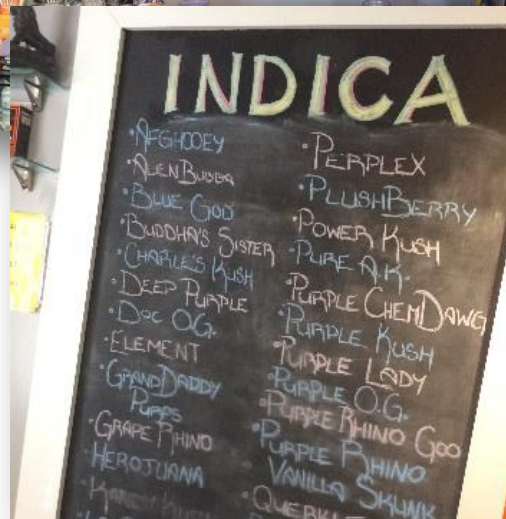 INDICA
•AFGHOOEY
•ALIEN BUBBA
•BLUE GOD
•BUDDHA'S SISTER
•CHARLE'S KUSH
•DEEP PURPLE
•DOC O.G.
•ELEMENT
•GRANDDADDY
PURPS
•GRAPE RHINO
•HEROJUANA
•PERPLEX
•PLUSHBERRY
•POWER KUSH
•PURE A.K.
•PURPLE CHEMDAWG
•PURPLE KUSH
•PURPLE LADY
•PURPLE O.G.
•PURPLE RHINO GOO
•PURPLE RHINO
VANILLA SKUNK